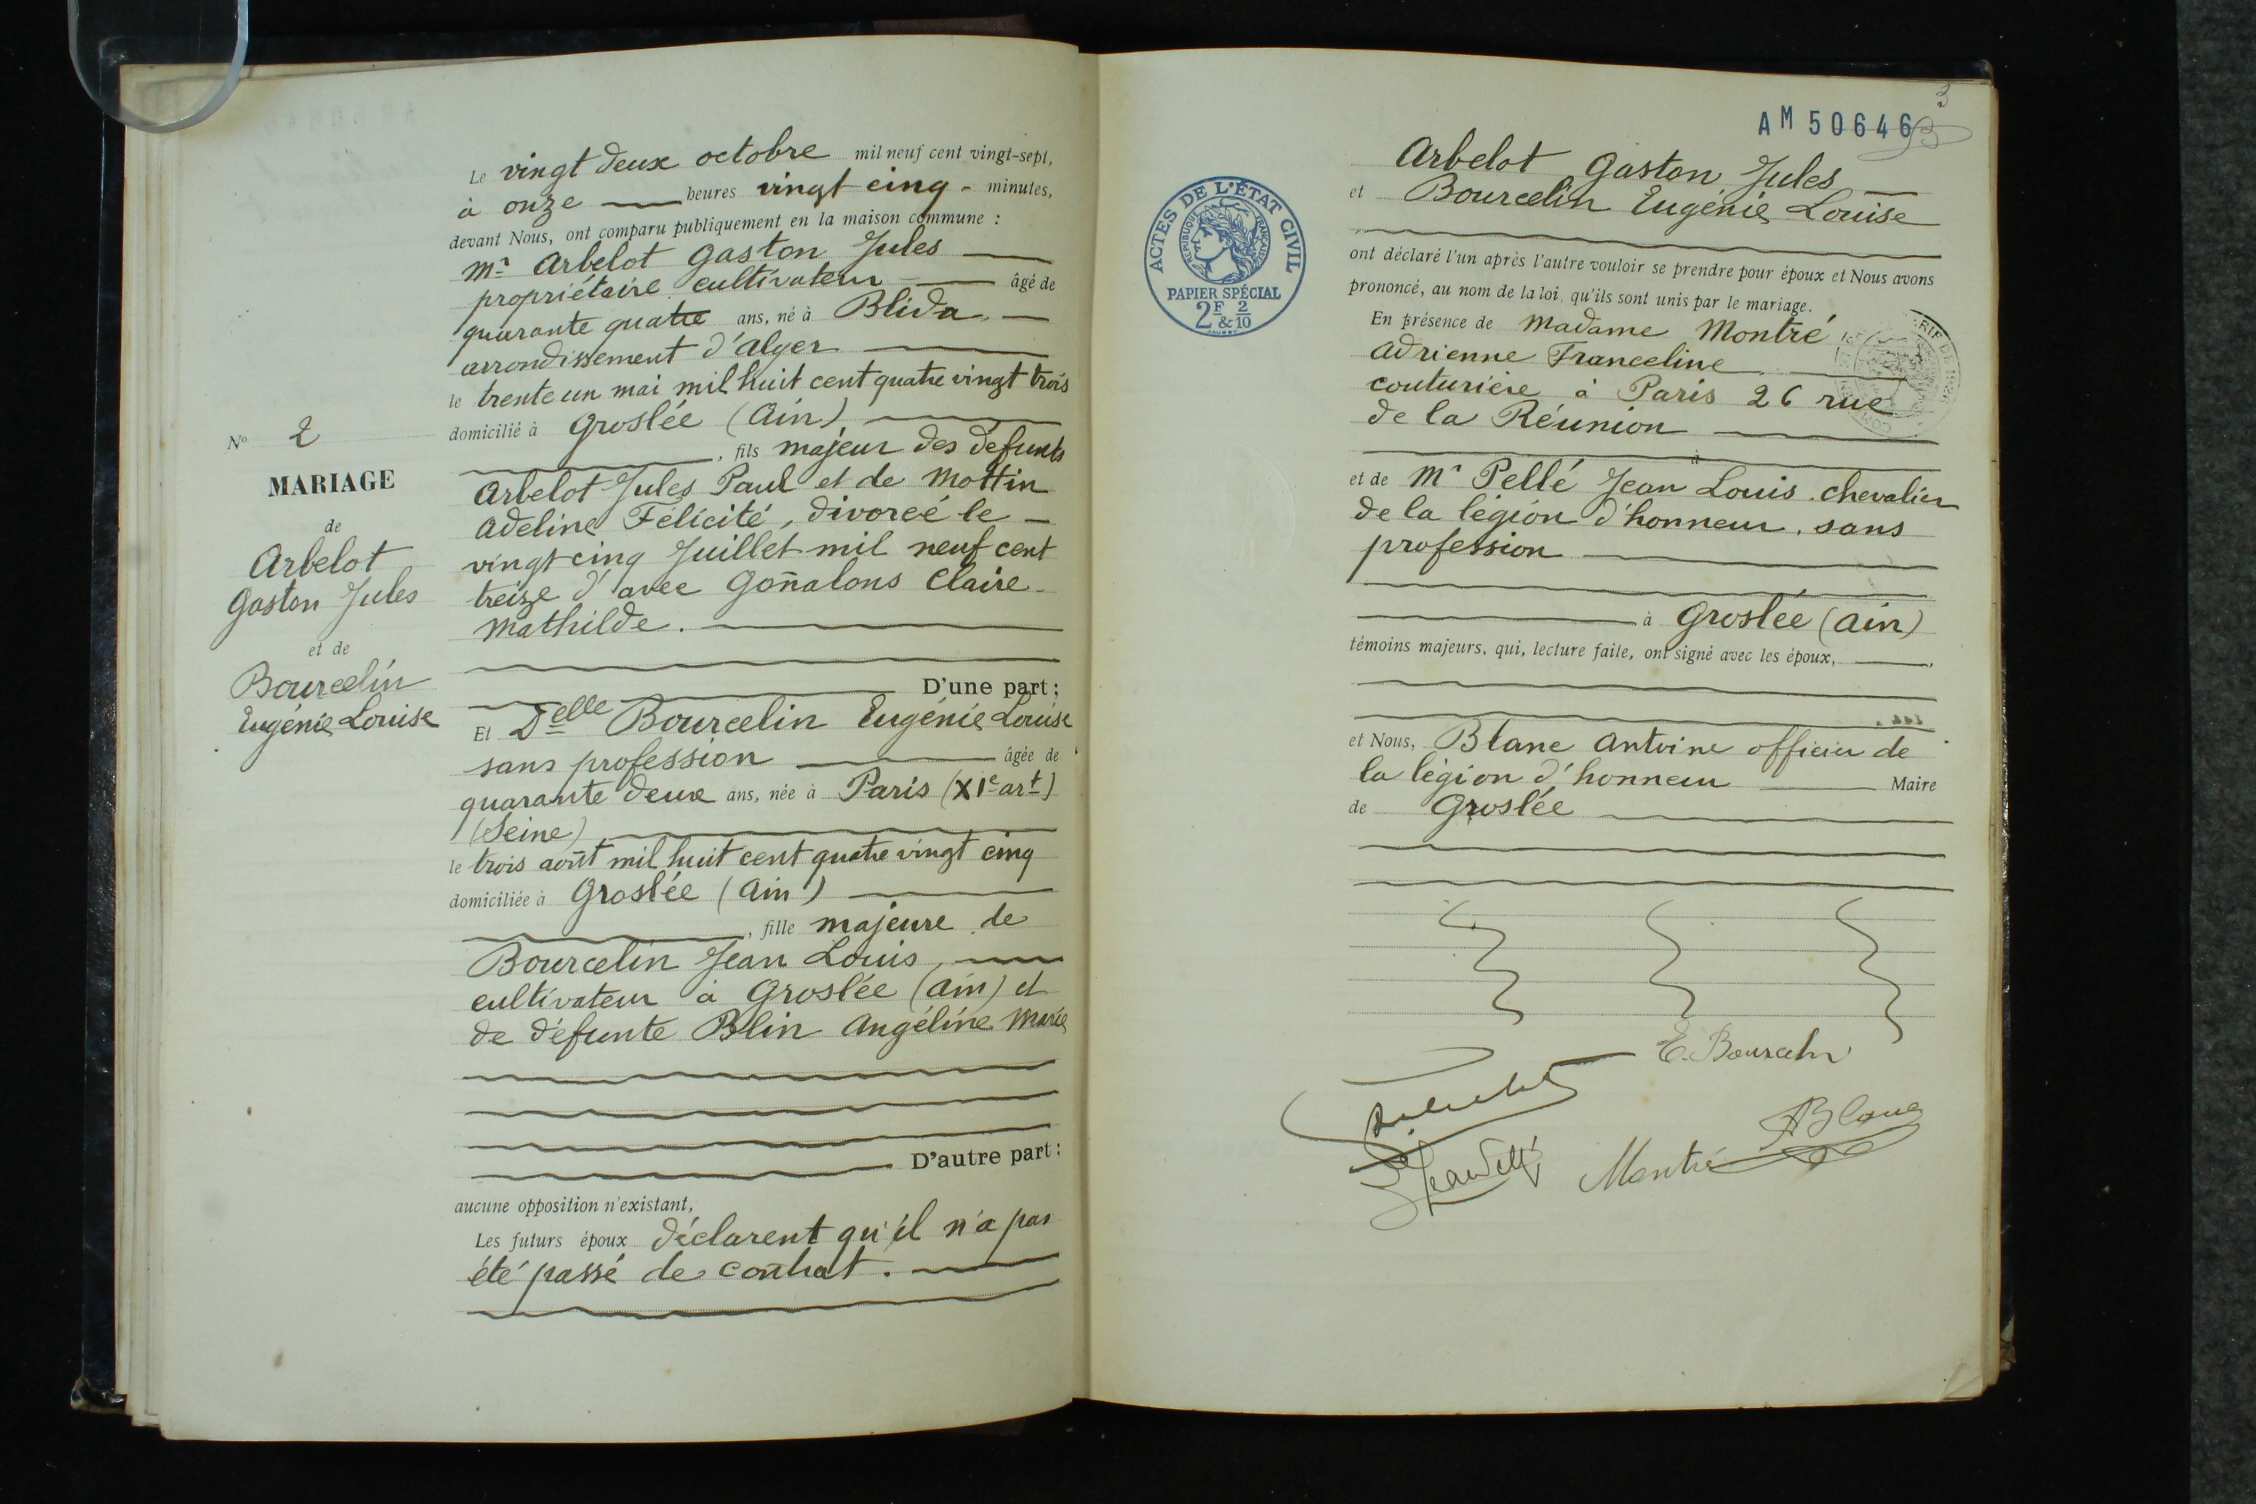 Le vingt deux octobre mil neuf cent vingt-sept,
à onze heures vingt cinq - minutes,
devant Nous, ont comparu publiquement en la maison commune :
Mr Arbelot Gaston Jules
propriétaire cultivateur âgé de
quarante quatre ans, né à Blida
arrondissement d'Alger
le trente un mai mil huit cent quatre vingt trois
domicilié à Groslée (Ain)
, fils majeur des defunts
Arbelot Jules Paul et de Mottin
Adeline Félicité, divorcé le
vingt cinq Juillet mil neuf cent
treize d'avec Goñalons Claire
Mathilde.
D'une part :
Et Delle Bourcelin Eugénie Louise
sans profession âgée de
quarante deux ans, née à Paris (XIe art)
(Seine)
le trois août mil huit cent quatre vingt cinq
domiciliée à Groslée (Ain)
, fille majeure de
Bourcelin Jean Louis,
cultivateur à Groslée (Ain) et
de défunte Blin Angéline Marie
D'autre part :
aucune opposition n'existant,
Les futurs époux déclarent qu'il n'a pas
été passé de contrat.
No 2
MARIAGE
de
Arbelot
Gaston Jules
et de
Bourcelin
Eugénie Louise
3
AM 50646
ACTES DE L'ÉTAT CIVIL
RÉPUBLIQUE FRANÇAISE
PAPIER SPÉCIAL
2F & 2/10
Arbelot Gaston Jules
et Bourcelin Eugénie Louise
ont déclaré l'un après l'autre vouloir se prendre pour époux et Nous avons
prononcé, au nom de la loi, qu'ils sont unis par le mariage.
En présence de Madame Montré
Adrienne Franceline
couturière à Paris 26 rue
de la Réunion
à
et de Mr Pellé Jean Louis, chevalier
de la légion d'honneur, sans
profession
à Groslée (Ain)
témoins majeurs, qui, lecture faite, ont signé avec les époux,
et Nous, Blanc Antoine officier de
la légion d'honneur Maire
de Groslée
E. Bourcelin
ABlanc
Montré